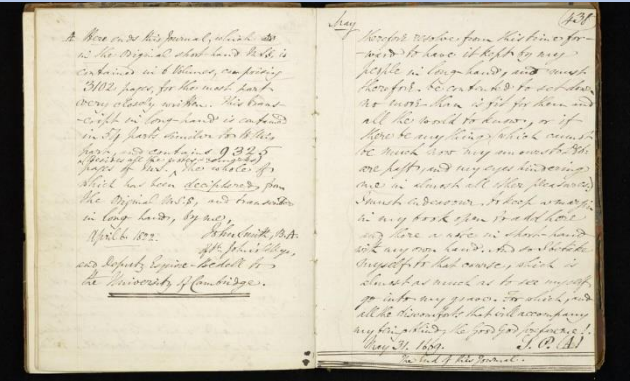 Here ends this Journal, which
in the Original short-hand M.S. is
contained in 6 Volumes, comprising
3102 pages, for the most part
very closely written. This trans-
-cript in long-hand is contained
in 54 parts similar to this
part, and contains 9325
pages of M.S. the whole of
which has been decyphered, from
the Original M.S.S., and transcribed
in long hand, by me,
April 6. 1822. John Smith, B.A.
of St. John's College,
and Deputy Esquire-Bedell to
the University of Cambridge.
May
therefore resolve from this time for-
-ward to have it kept by my
people in long-hand, and must
therefore be contented to set down
no more than is fit for them and
all the world to know, or if
there be any thing, which cannot
be much now my amours to Deb
are past, and my eyes hindering
me in almost all other pleasures,
I must endeavour to keep a margin
in my book open to add here
and there a note in short-hand
with my own hand. And so I betake
myself to that course, which is
almost as much as to see myself
go into my grave. For which, and
all the discomforts that will accompany
my being blind, the Good God prepare me!
May 31. 1669. S. P.
The End of this Journal.